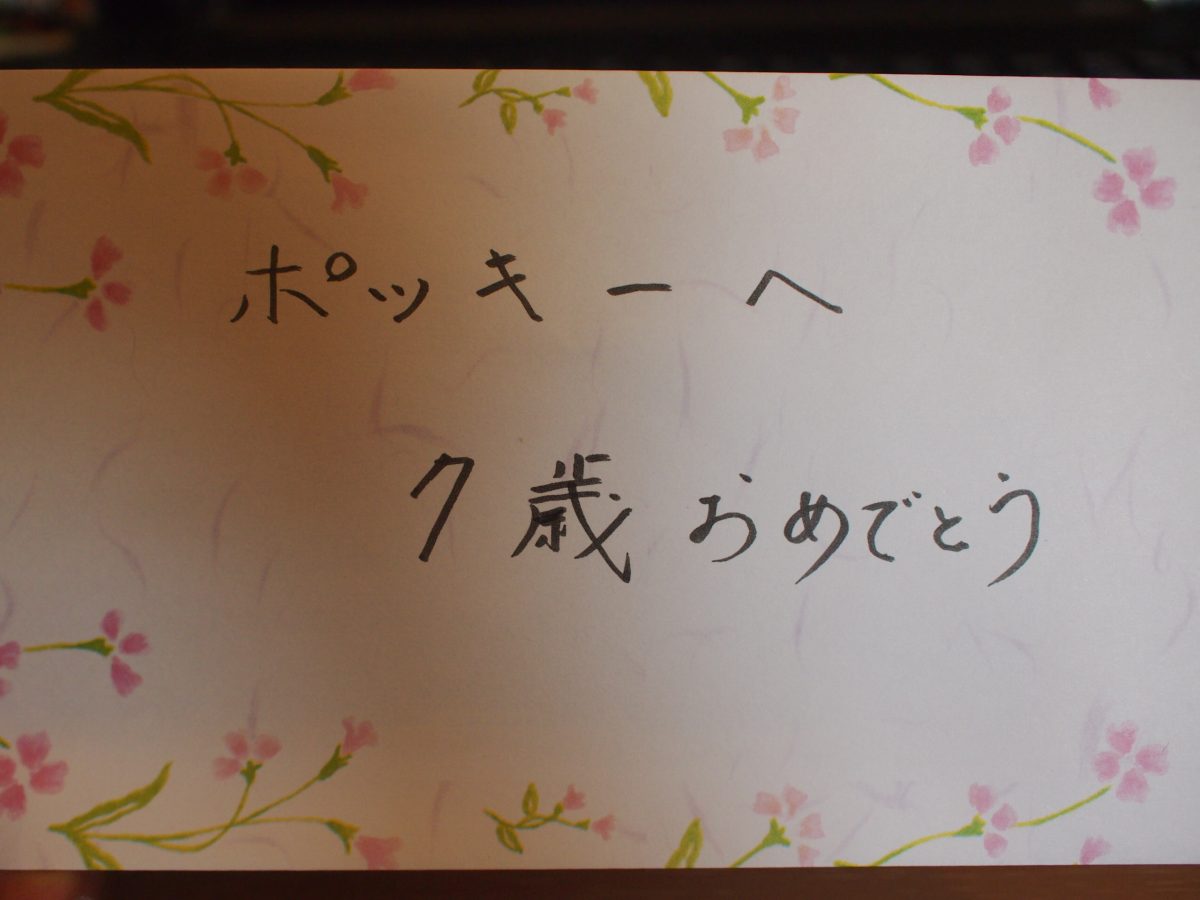 ポッキーへ
7歳おめでとう